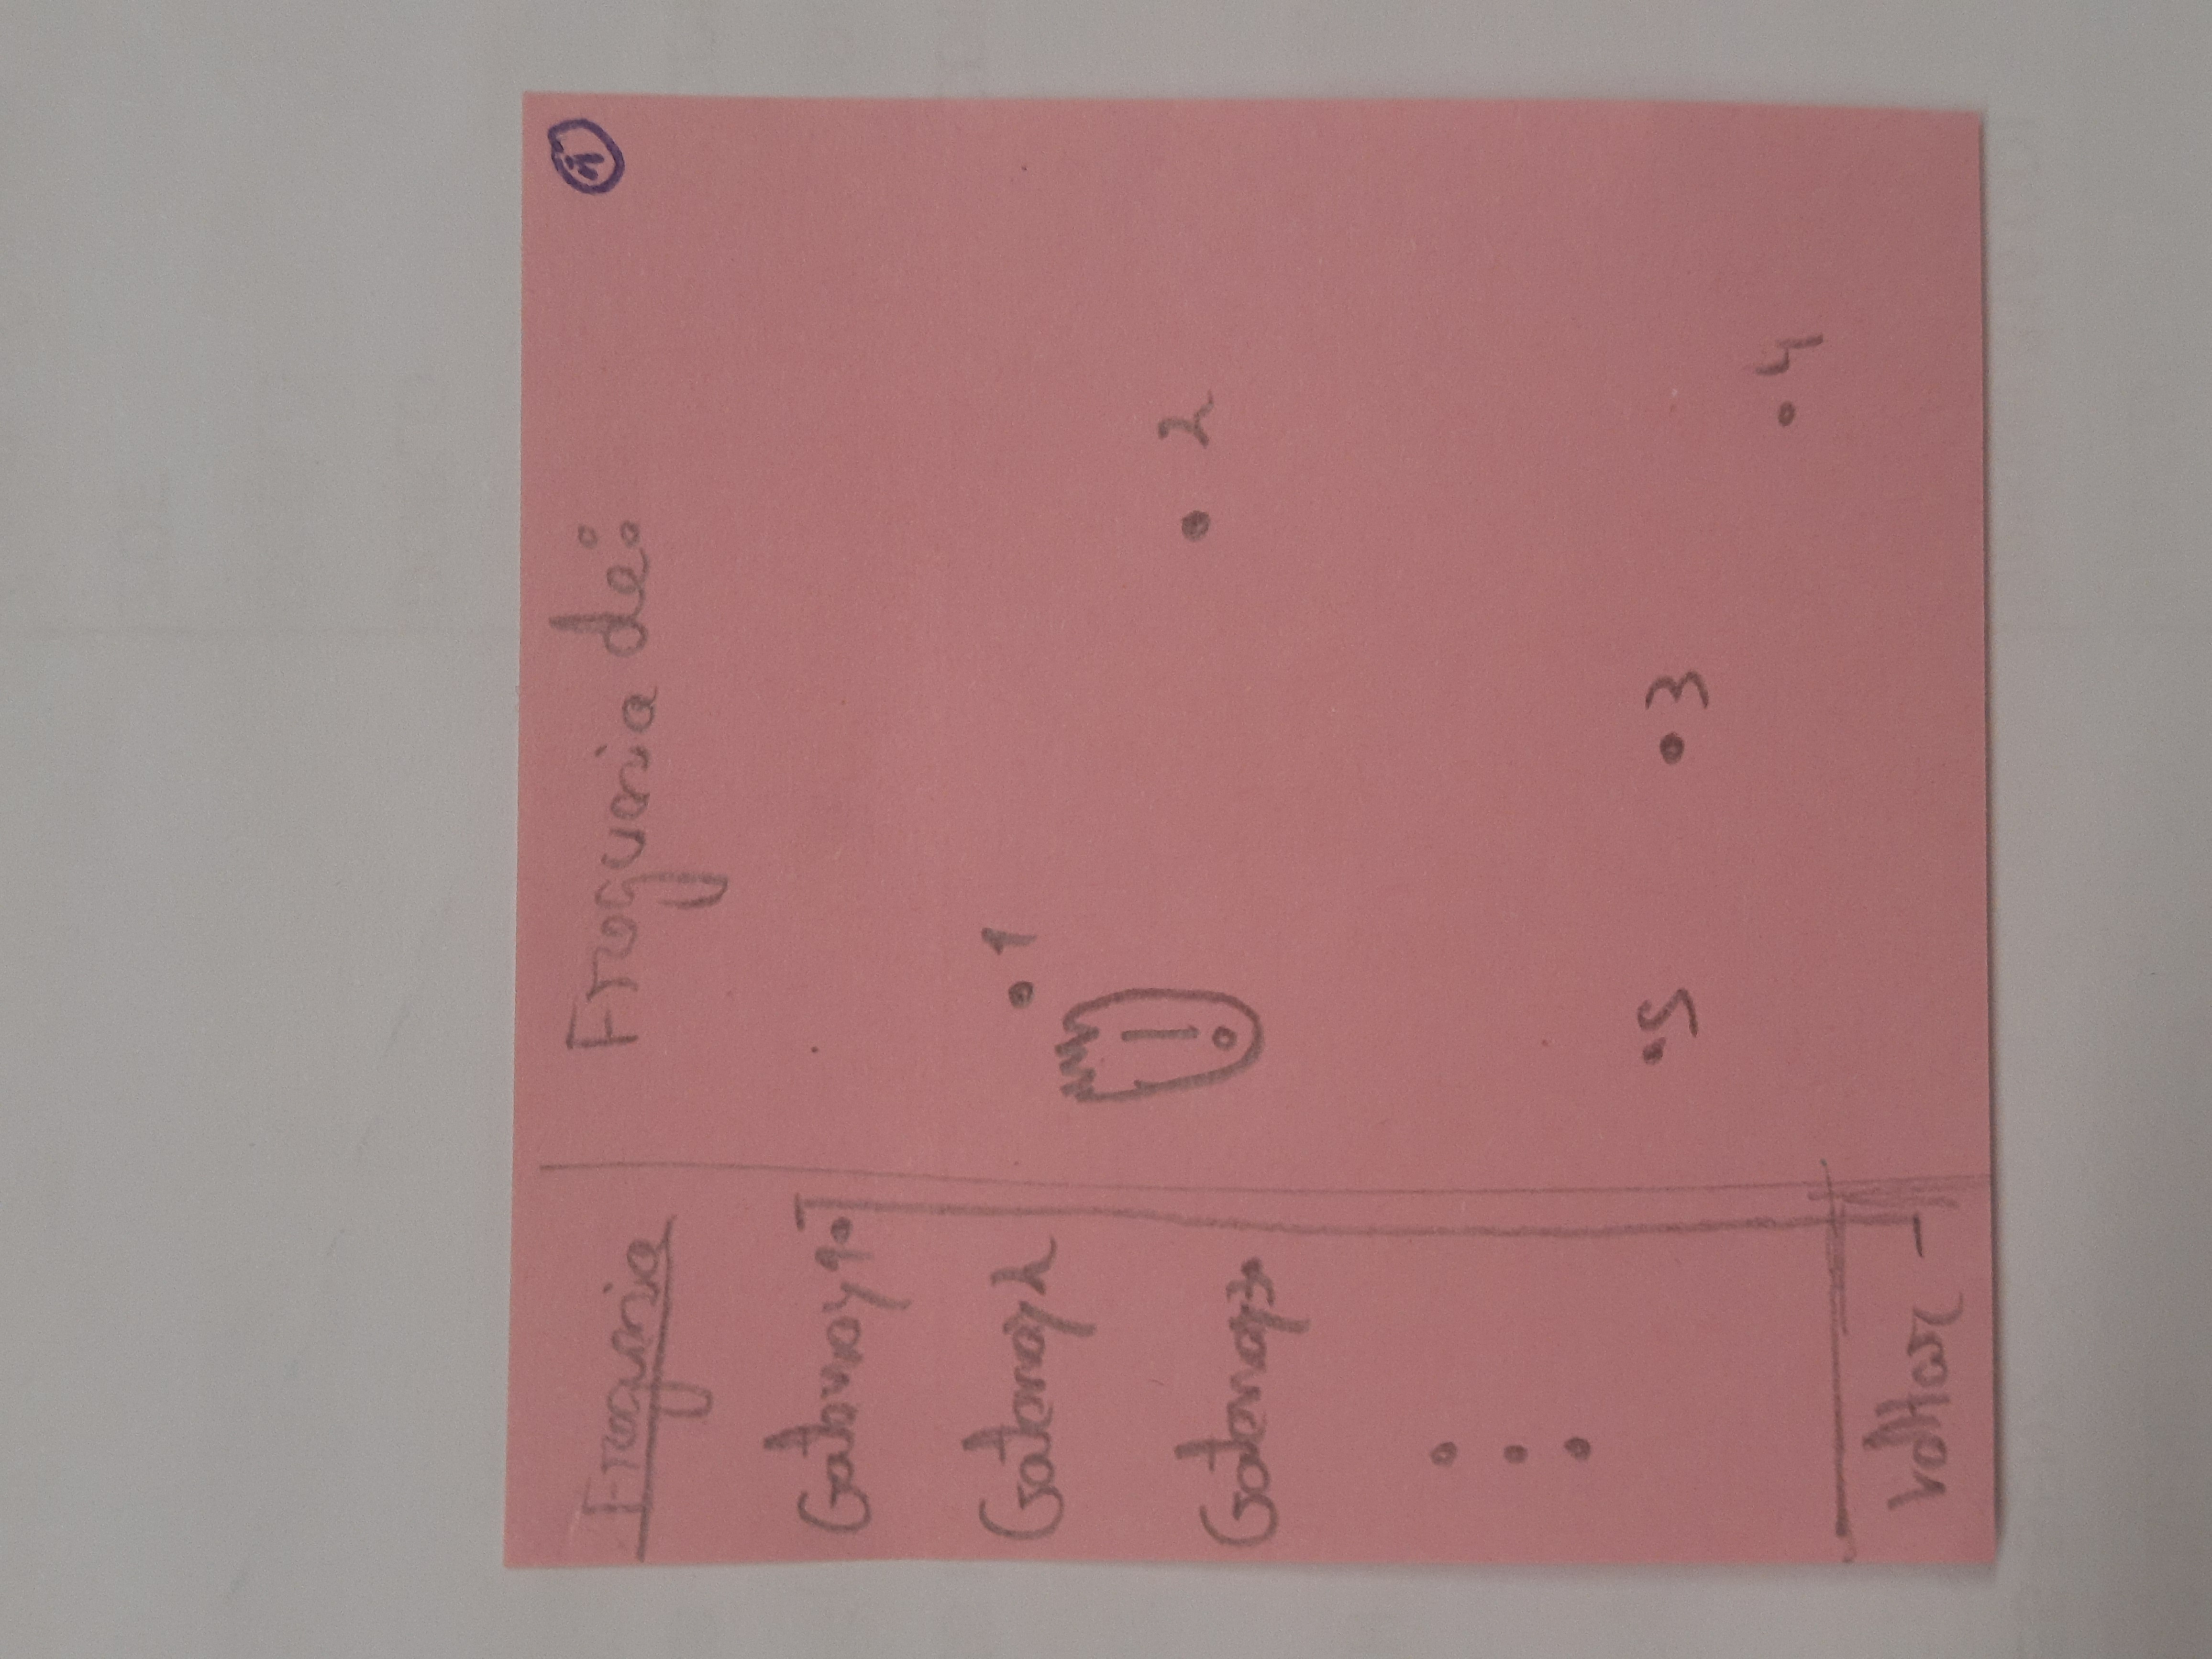 Freguesia
Gateway 1
Gateway 2
Gateway 3
Voltar
Freguesia de:
1
! 
2
5
3
4